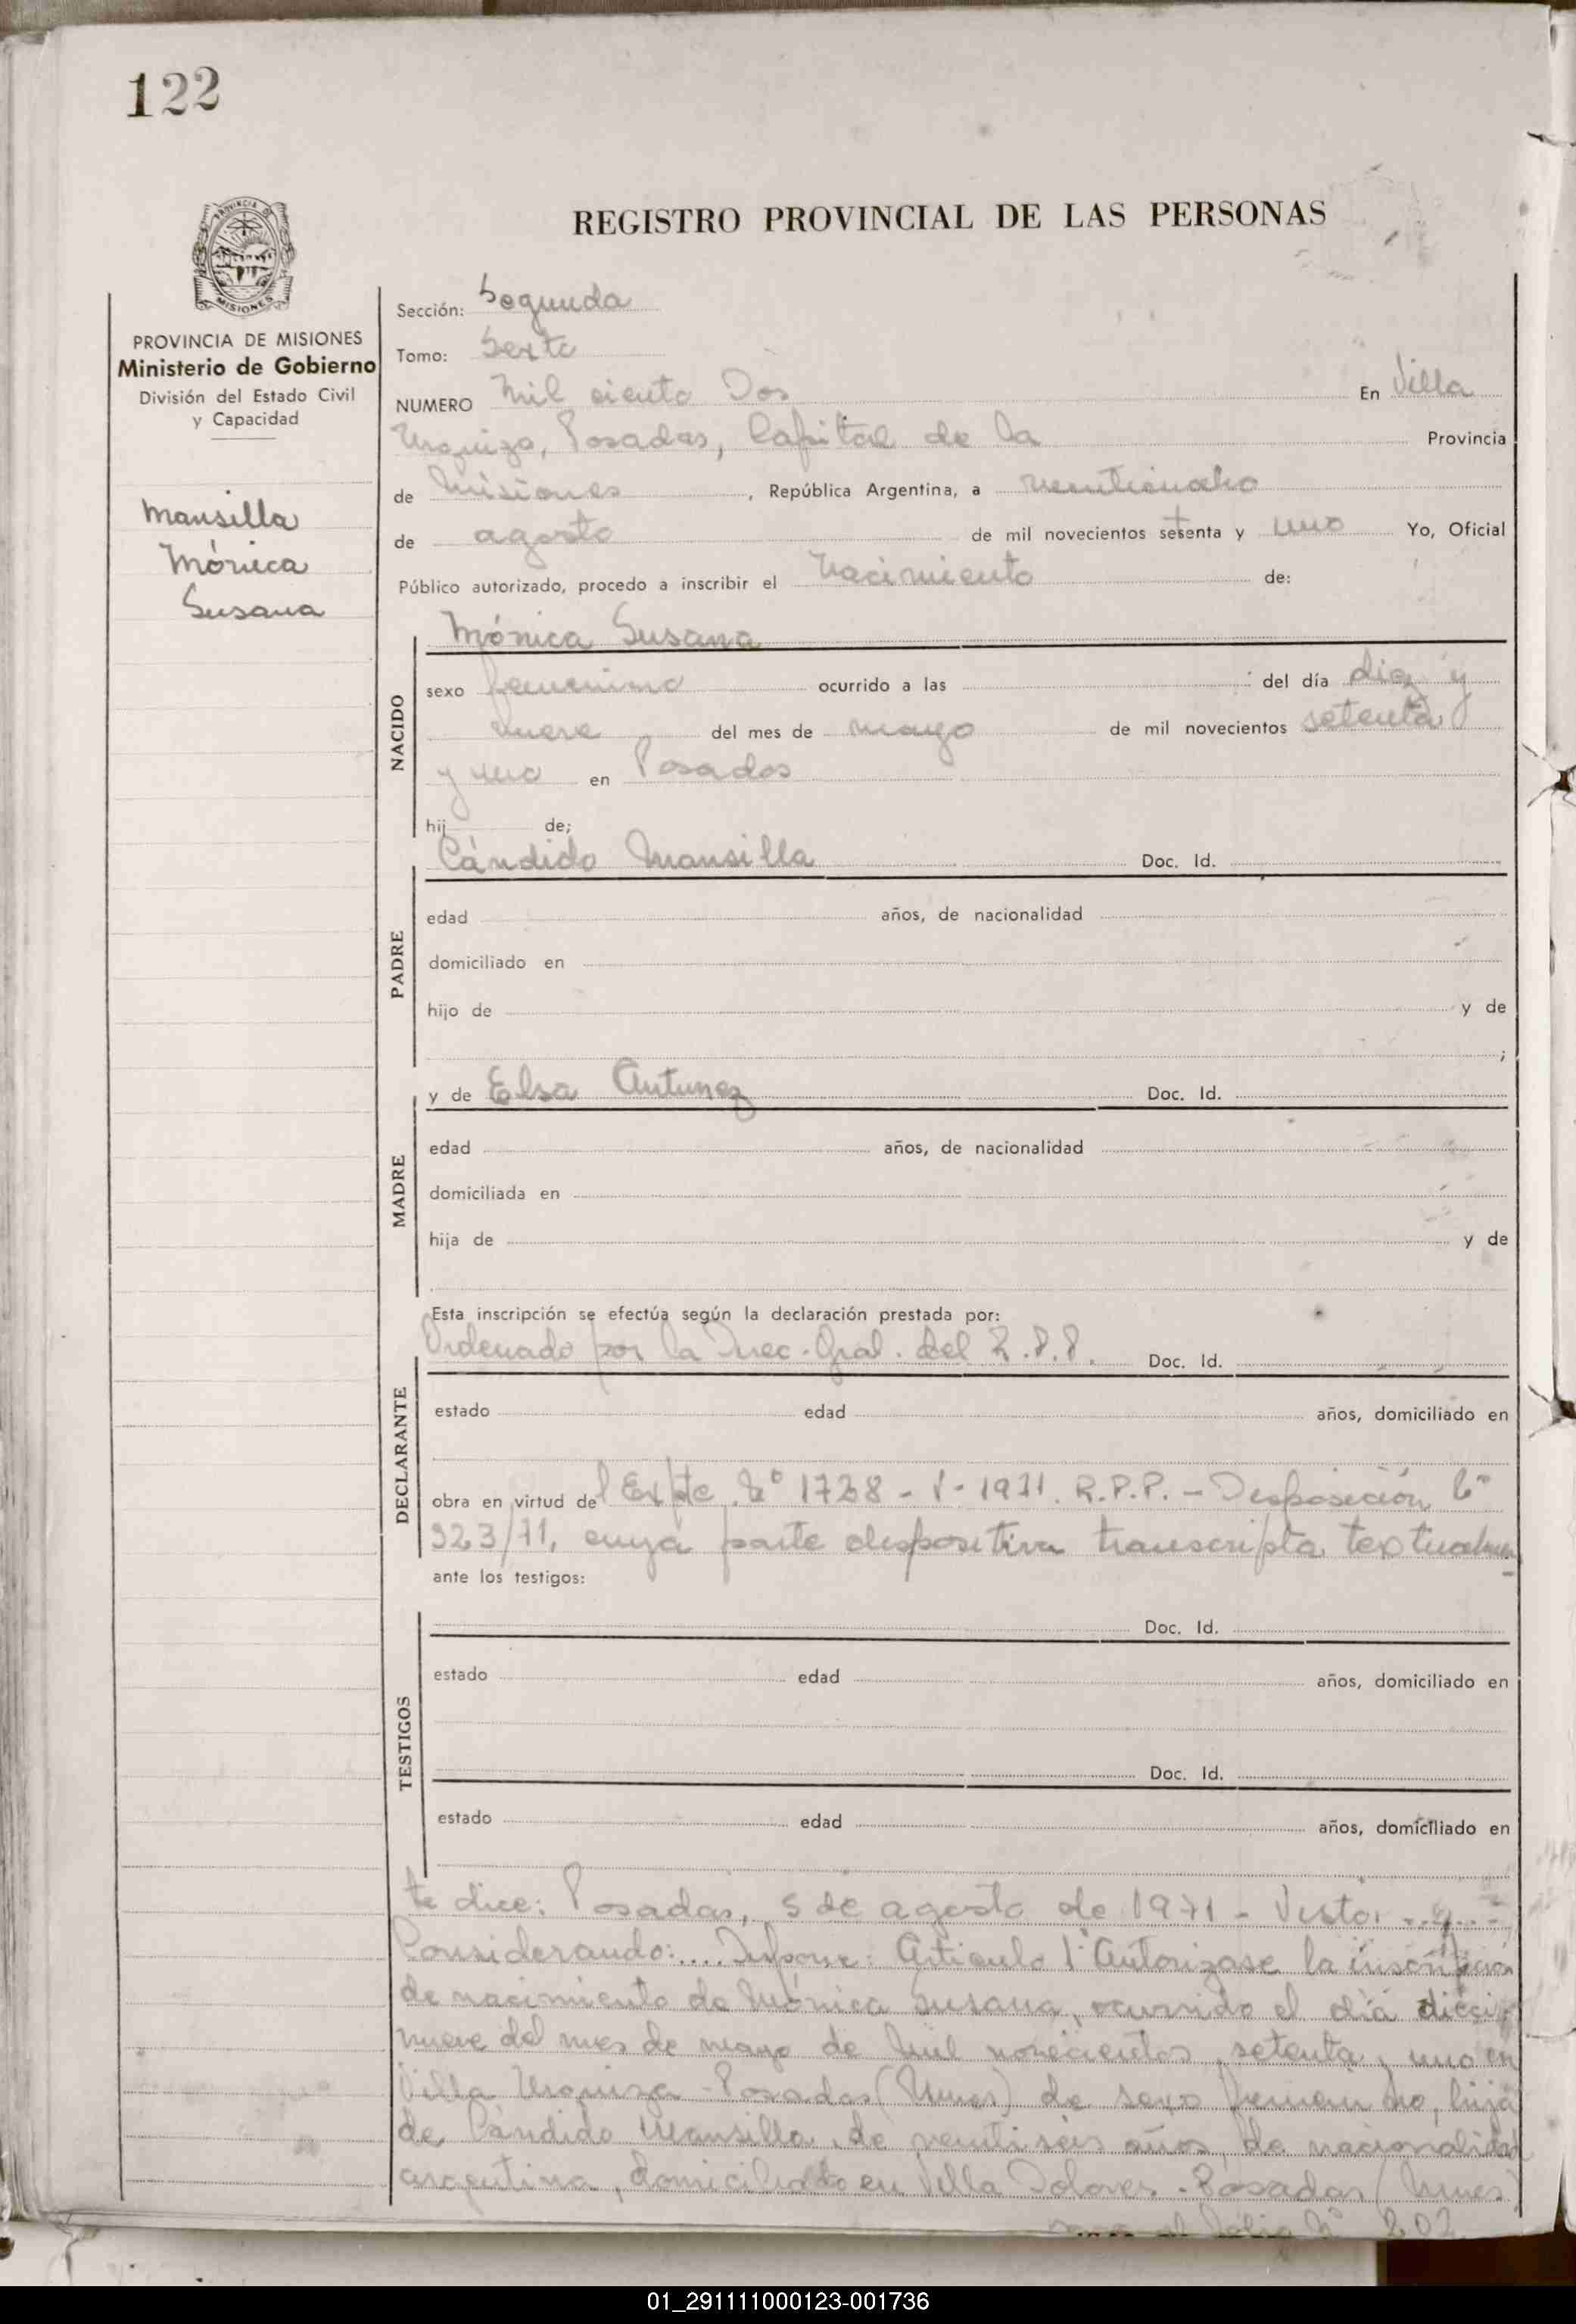 122
PROVINCIA DE
MISIONES
REGISTRO PROVINCIAL DE LAS PERSONAS
PROVINCIA DE MISIONES
Ministerio de Gobierno
División del Estado Civil
y Capacidad
Mansilla
Mónica
Susana
Sección: Segunda
Tomo: Sexto
NUMERO Mil ciento Dos En Villa
Urquiza, Posadas, Capital de la Provincia
de Misiones, República Argentina, a veintiocho
de agosto de mil novecientos setenta y uno Yo, Oficial
Público autorizado, procedo a inscribir el Nacimiento de:
Mónica Susana
NACIDO
sexo femenino ocurrido a las del día diez y
nueve del mes de mayo de mil novecientos setenta
y uno en Posadas
hij de;
Cándido Mansilla Doc. Id.
PADRE
edad años, de nacionalidad
domiciliado en
hijo de y de
;
y de Elsa Antunez Doc. Id.
MADRE
edad años, de nacionalidad
domiciliada en
hija de y de
Esta inscripción se efectúa según la declaración prestada por:
Ordenado por la Direc. Gral. del R.P.P. Doc. Id.
DECLARANTE
estado edad años, domiciliado en
obra en virtud del Expte. Nº 1728 - V - 1971. R.P.P. - Disposición Nº
923/71, cuya parte dispositiva transcripta textualmen
ante los testigos:
Doc. Id.
TESTIGOS
estado edad años, domiciliado en
Doc. Id.
estado edad años, domiciliado en
te dice: Posadas, 5 de agosto de 1971 - Visto: .. y ..
Considerando: .... Dispone: Articulo 1º Autorizase la inscripción
de nacimiento de Mónica Susana, ocurrido el día dieci
nueve del mes de mayo de mil novecientos setenta y uno en
Villa Urquiza - Posadas (Mnes) de sexo femenino, hija
de Cándido Mansilla, de veintiseis años, de nacionalidad
argentina, domiciliado en Villa Dolores - Posadas (Mnes)
al folio Nº 202
01_291111000123-001736